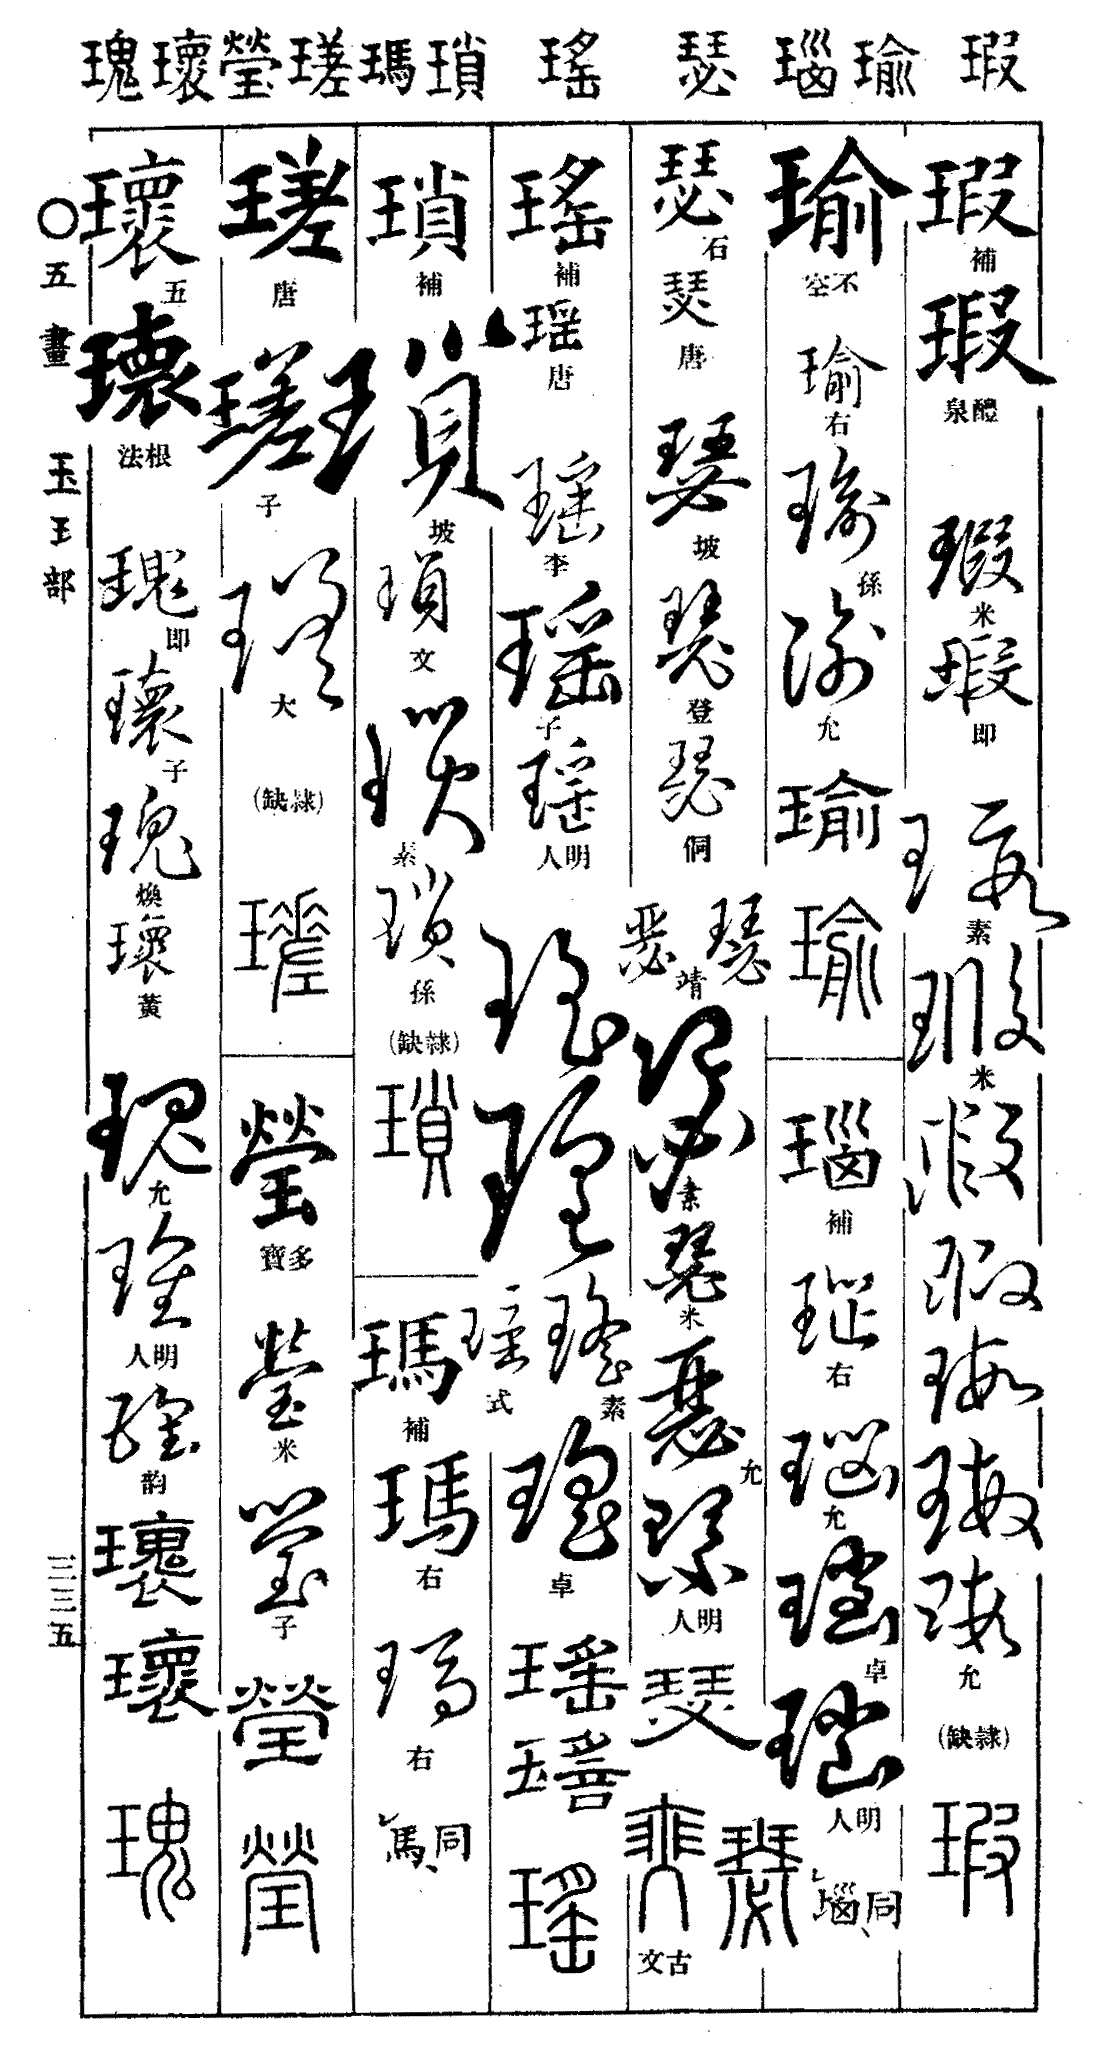 瑕瑜瑙瑟瑤瑣瑪瑳瑩瓌瑰
瑕補瑕醴泉瑕米瑕即瑕素瑕米瑕瑕瑕瑕瑕允(隷缺)瑕
瑜不空瑜右瑜孫瑜允瑜瑜
瑙補瑙右瑙允瑙卓瑙明人㛴同
瑟石瑟唐瑟坡瑟登瑟侗瑟瑟靖瑟素瑟米瑟允瑟明人瑟瑟瑟古文
瑤補瑤唐瑤李瑤子瑤明人瑤瑤瑤素瑤式瑤卓瑤瑤瑤
瑣補瑣坡瑣文瑣素瑣孫(隷缺)瑣
瑪補瑪右瑪右馬同
瑳唐瑳子瑳大(隷缺)瑳
瑩多寶瑩米瑩子瑩瑩
瓌五瓌根法瑰即瓌子瑰煥瓌黃瑰允瑰明人瑰韵瓌瓌瑰
〇五畫 玉王部 三三五